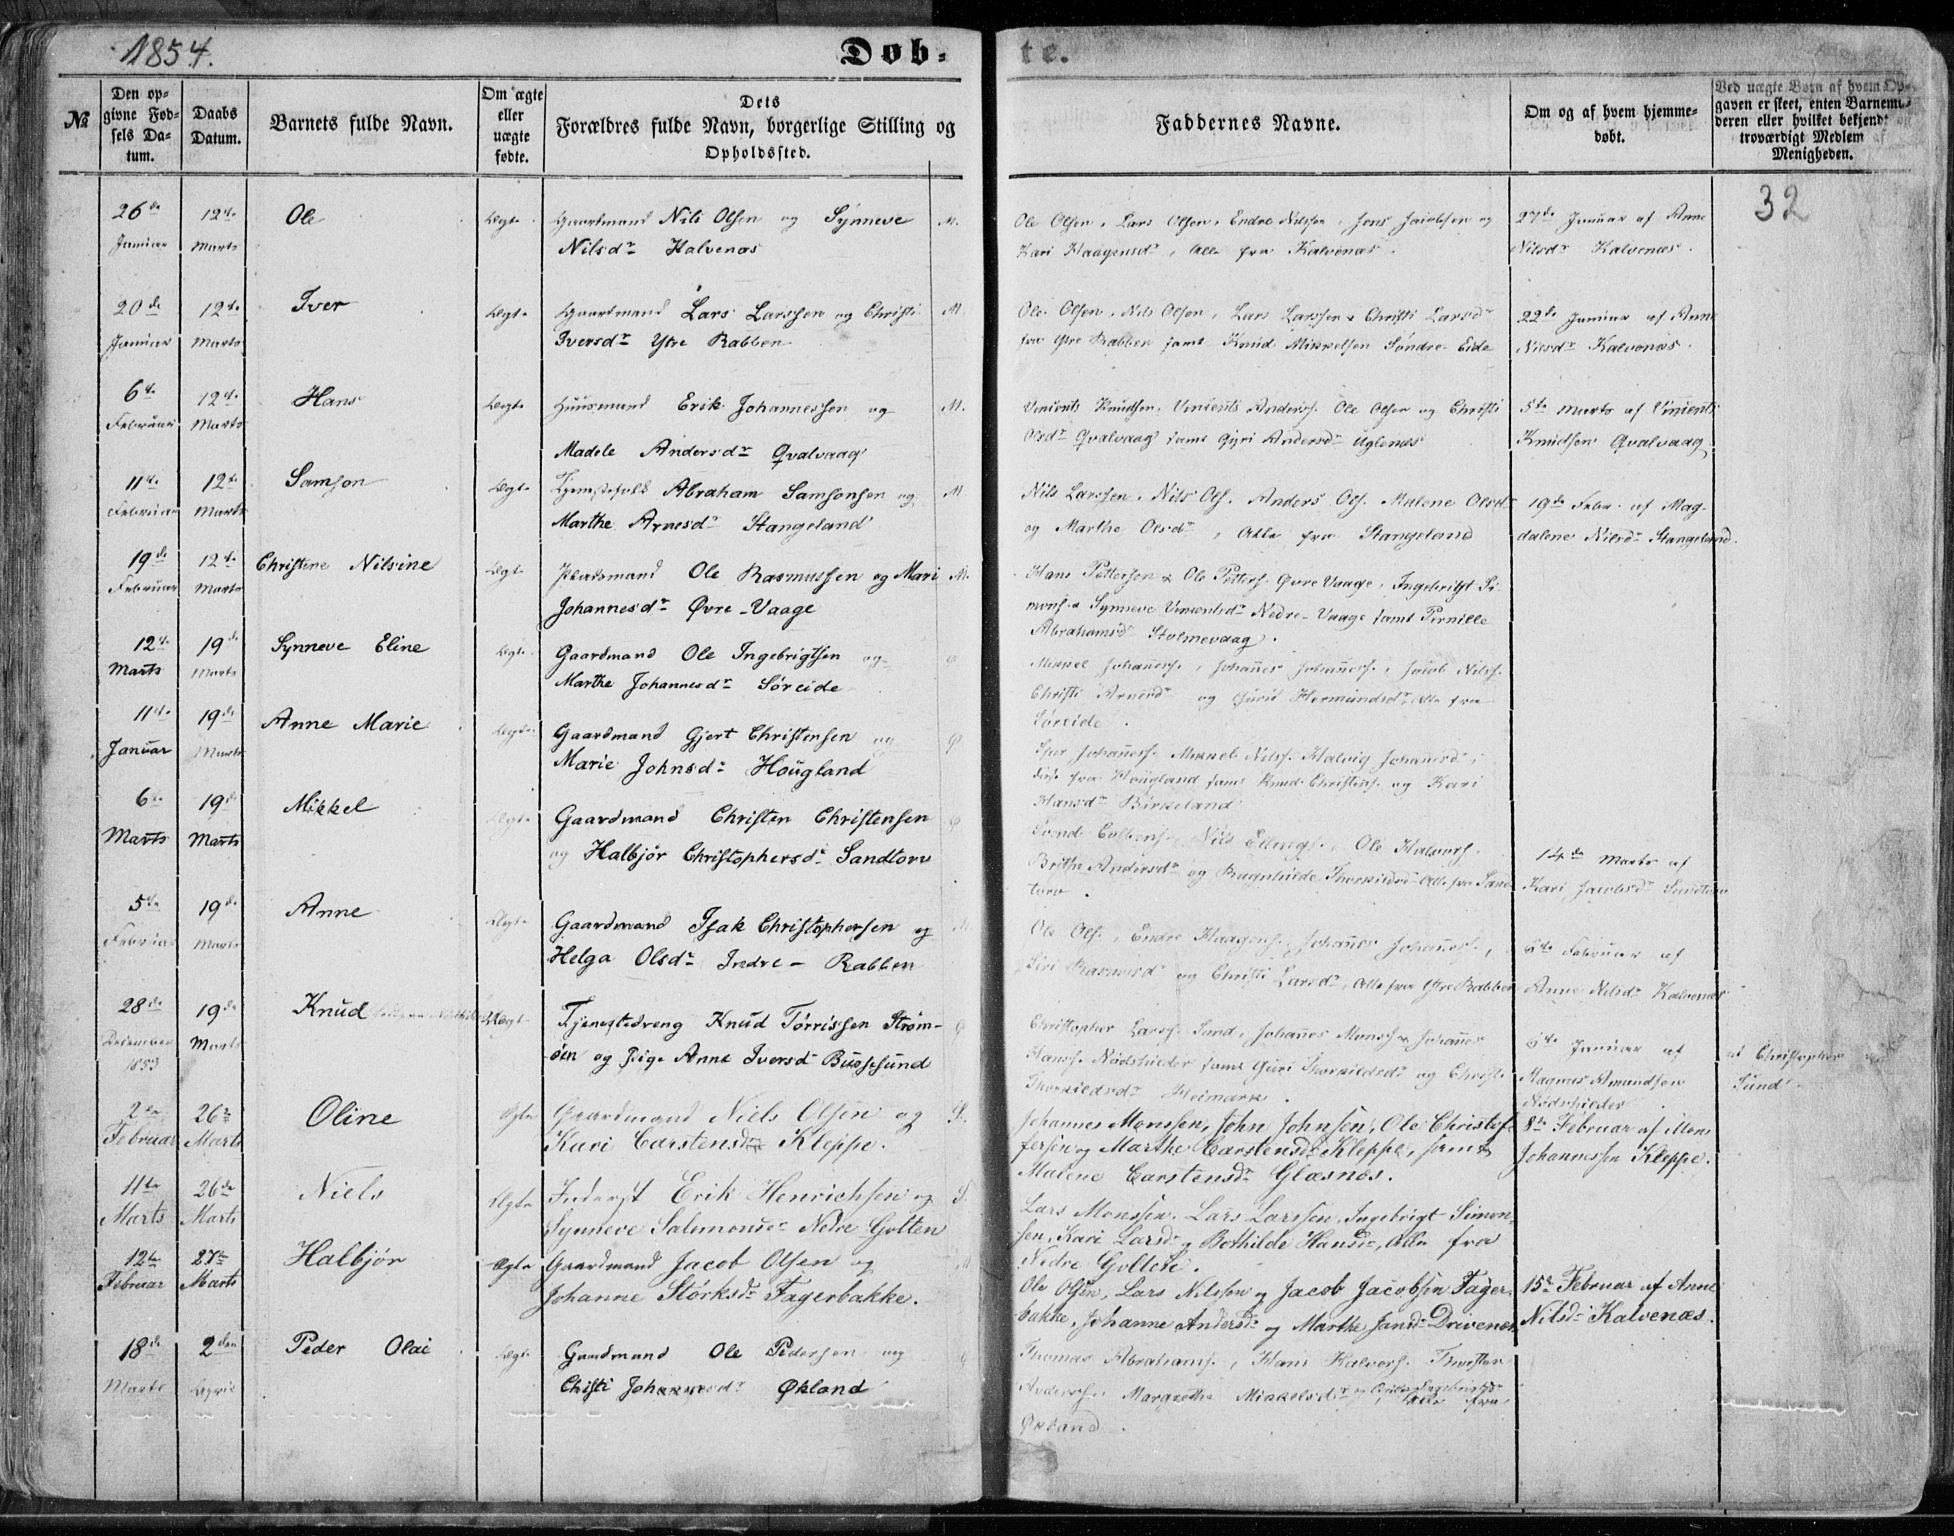 1854.
Døb-
te.
32
№
Den op-
givne Fød-
sels Da-
tum.
Daabs
Datum.
Barnets fulde Navn.
Om ægte
eller
uægte
fødte.
Dets
Forældres fulde Navn, borgerlige Stilling og
Opholdssted.
Faddernes Navne.
Om og af hvem hjemme-
døbt.
Ved uægte Børn af hvem Op-
gaven er skeet, enten Barnemo-
deren eller hvilket bekjendt og
troværdigt Medlem af
Menigheden.
26de Januar
12te Marts
Ole
Ægte
Gaardmand Nils Olsen og Synneve
Nilsdr Kalvenæs
M.
Ole Olsen, Lars Olsen, Endre Nilssen, Jens Jacobsen og
Kari Haagensdr, Alle fra Kalvenæs.
27de Januar af Anne
Nilsdr Kalvenæs.
20de Januar
12te Marts
Iver
Ægte
Gaardmand Lars Larssen og Christi
Iversdr Ytre Rabben
M.
Ole Olsen, Nils Olsen, Lars Larssen & Christi Larsdr
fra Ytre Rabben samt Knud Mikkelsen Søndre Eide
22de Januar af Anne
Nilsdr Kalvenæs.
6te Februar
12te Marts
Hans
Ægte
Huusmand Erik Johannessen og
Madele Andersdr Qvalvaag
M.
Vincents Knudsen, Vincents Anders. Ole Olsen og Christi
Olsdr Qvalvaag samt Gyri Andersdr Uglenæs
5te Marts af Vincents
Knudsen Qvalvaag
11te Februar
12te Marts
Samson
Ægte
Tjenestefolk Abraham Samsonsen og
Marthe Arnesdr Stangeland
M.
Nils Larssen, Nils Ols. Anders Ols. Malene Olsdr
og Marthe Olsdr, Alle fra Stangeland
19de Febr. af Mag-
dalene Nilsdr Stangeland.
19de Februar
12te Marts
Christine Nilsine
Ægte
Pladsmand Ole Rasmussen og Mari
Johannesdr Øvre-Vaage
M.
Hans Pettersen & Ole Petters. Øvre Vaage, Ingebrigt Si-
mons. & Synneve Vincentsdr Nedre-Vaage samt Pernille
Abrahamsd Stolmevaag.
12te Marts
19de Marts
Synneve Eline
Ægte
Gaardmand Ole Ingebrigtsen og
Marthe Johannesdr Søreide
Ø
Mikkel Johaness., Johanes Johaness., Jacob Nilss.
Christi Arnesdr og Guri Hermundsdr, Alle fra
Søreide.
11te Januar
19de Marts
Anne Marie
Ægte
Gaardmand Gjert Christensen og
Marie Johnsdr Hougland
Ø
Johaness. Mikkel Nilss. Halvig Johanesd
fra Hougland samt Knud Christens. og Kari
Hansdr Birkeland
6te Marts
19de Marts
Mikkel
Ægte
Gaardmand Christen Christensen
og Halbjør Christophersdr Sandtorv
Ø
Nils Ellings., Ole Halvors.
Brithe Andersdr og Ragnhilde Thorkildsd Alle fra Sand-
torv.
14de Marts af
Kari Jacobsdr Sandtorv
5te Februar
19de Marts
Anne
Ægte
Gaardmand Isak Christophersen og
Helga Olsdr Indre-Rabben
M
Ole Ols., Endre Haagens., Johanes Johaness.,
Siri Rasmusdr og Christi Larsdr, Alle fra Ytre Rabben
Februar af
Anne Nilsdr Kalvenæs
28de December 1853
19de Marts
Knud
Uægte
Tjenestedreng Knud Tørrissen Strøm-
øen og Pige Anne Iversdr Bussesund
Ø
Christopher Larss. Sund, Johanes Monss & Johanes
Hanss. Nødshilder samt Guri Thorkildsdr og Christi
Thorkildsdr Heimark.
Januar af
Magnus Amundsen
Nødshilder
Christopher
Sund
2den Februar
26de Marts
Oline
Ægte
Gaardmand Niels Olsen og
Kari Carstensdr Kleppe.
S.
Johannes Monssen, John Johnsen, Ole Christof-
fersen og Marthe Carstensdr Kleppe, samt
Malene Carstensdr Glæsnæs.
8de Februar af Mons
Johannessen Kleppe.
11te Marts
26de Marts
Niels
Ægte
Inderst Erik Henrichsen og
Synneve Salomonsdr Nedre Golten
S.
Lars Monssen, Lars Larssen, Ingebrigt Simon-
sen, Kari Larsdr og Bothilde Hansdr, Alle fra
Nedre Golten.
12te Februar
27de Marts
Halbjør
Ægte
Gaardmand Jacob Olsen og
Johanne Størksdr Fagerbakke.
M
Ole Olsen, Lars Nilssen og Jacob Jacobsen Fager-
bakke, Johanne Andersdr og Marthe Jansdr Drivenes
15de Februar af Anne
Nilsdr Kalvenæs.
18de Marts
2den April
Peder Olai
Ægte
Gaardmand Ole Pedersen og
Christi Johannesdr Økland
Ø
Thomas Abrahams., Hans Halvors.
Anderss. Margrethe Mikkelsdr Alle fra
Økland.